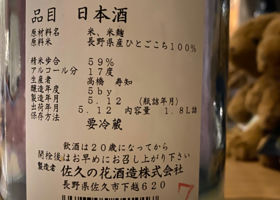 品目 日本酒
原材料名 米、米麹
原料米 長野県産ひとごこち100%
精米歩合 59%
アルコール分 17度
杜氏 高橋 寿知
醸造年度 5by
製造年月 5.12 (瓶詰年月)
出荷年月 5.12 内容量 1.8L詰
保存方法 要冷蔵
飲酒は20歳になってから
開栓後はお早めにお召し上がり下さい
製造者 佐久の花酒造株式会社
長野県佐久市下越620
7